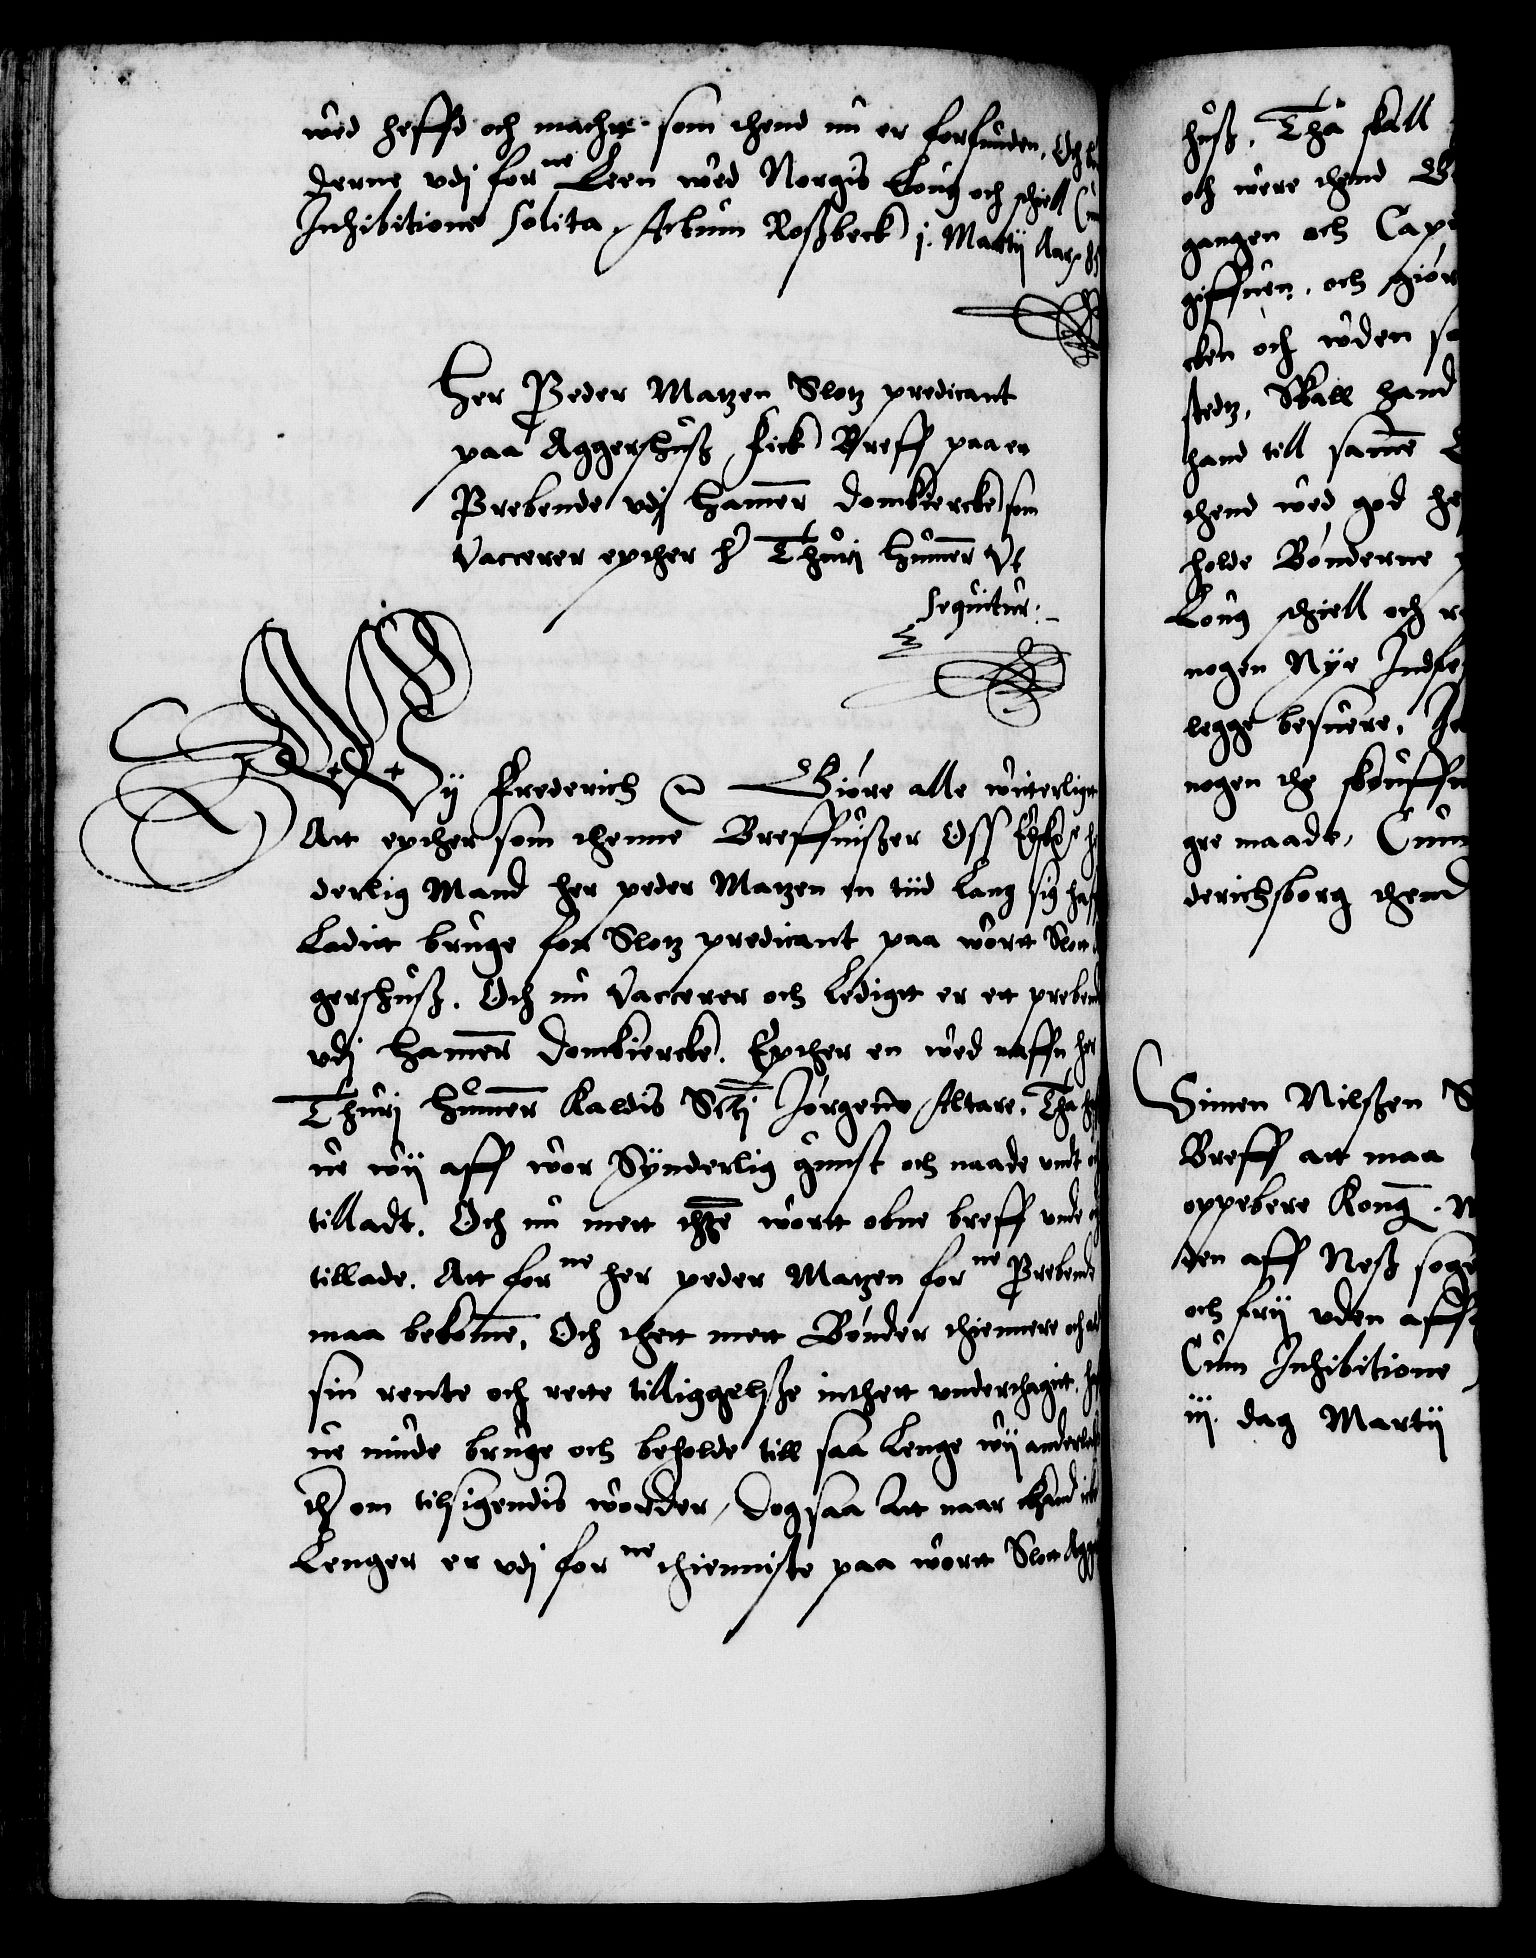 wed heffd och machtt som thend nu er forfunden. Och
derne vdj forne Leen wed Norgis Loug och schiell
Inhibitione Solita, Actum Roßbeck j. Martij Aar 85
Her Peder Matzen Slotz predicant
paa Aggershuß fick Breff paa en
Prebende vdj Hamer domkiercke som
Vaccerer epther her Thurj Hummer Vt
sequitur:
Wij Frederich Giøre alle witterligt
Att epther som thenne Breffuißer Oss Elskelige
derlig Mand her peder Matzen en tiid lang sig
Ladit bruge for Slotz predicant paa wortt Slott
gershuß. Och nu Vaccerer och Lediget er ett prebend
vdj Hamer domkiercke. Epther en wed naffn her
Thurj Hummer Kaldis Sctj Jørgens Altare. Tha
ue wij aff wor Synderlig gunst och naade vndt
tilladt. Och nu mett thette wortt obne breff vnde
tillade. Att forne her peder Matzen forne Prebende
maa bekomme. Och thett mett Bønder thiennere och
sin rente och rette tilliggelße inthett vnderthagitt,
ue niude bruge och beholde till saa Lenge wij anderled
ther om tilsigendis worder, dog saa Att naar thand
Lenger er vdj forne thienniste paa wortt Slott
huß. Tha skall
oth were thend
gangen och
giffuen. och giør
cken och wden
stedtz, Skall hand
hand till samme
thend wed god
holde Bønderne
Loug schiell och
nogen Nye
legge besuere.
nogen the skouffu
gre maade,
derichsborg thend
Simen Nilsßen
Breff att maa
oppebere Kong.
den aff Neß
och frij vden aff
Cum Inhibitione
iij. dag Martij